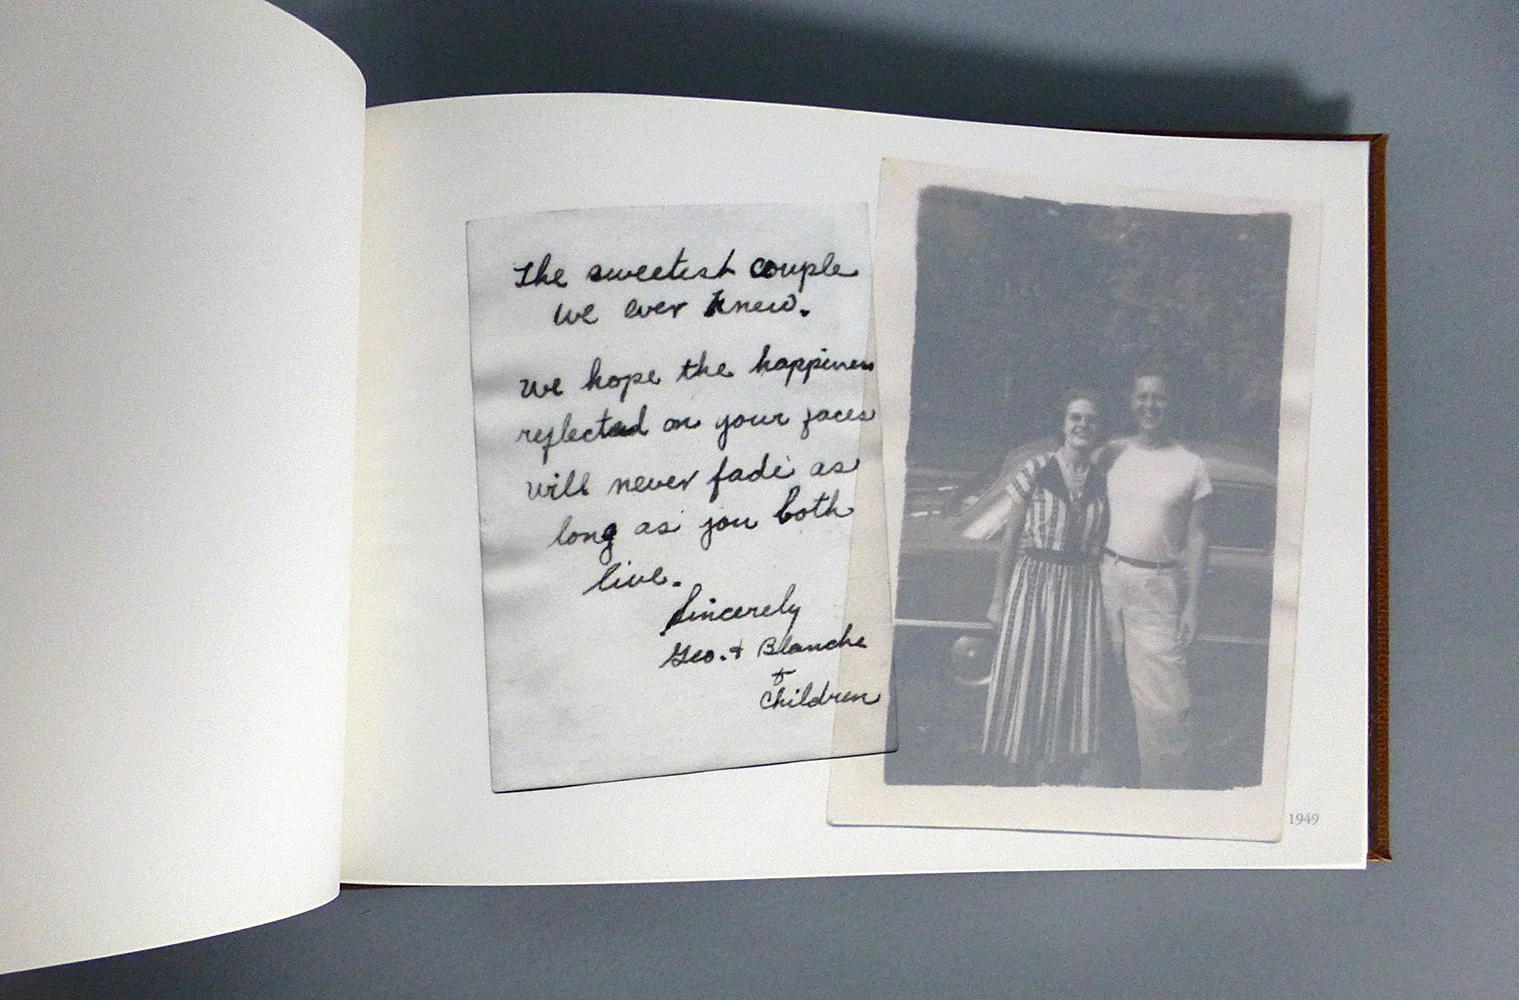 The sweetest couple
we ever knew.
We hope the happiness
reflected on your faces
will never fade as
long as you both
live.
Sincerely
Geo. + Blanche
+
Children
1949